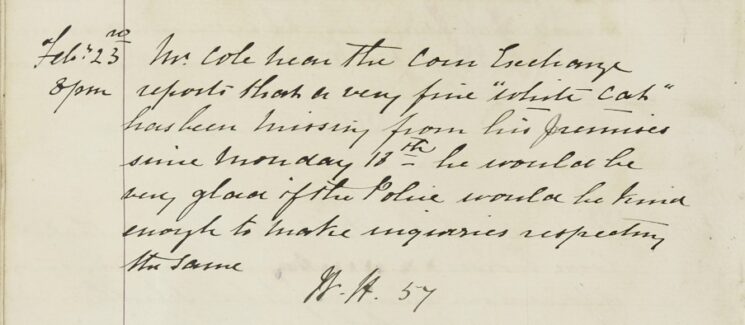 Feby 23rd Mr. Cole near the Corn Exchange
8pm reports that a very fine "white Cat"
has been missing from his premises
since Monday 18th he would be
very glad if the Police would be kind
enough to make inquiries respecting
the same
W. H. 57